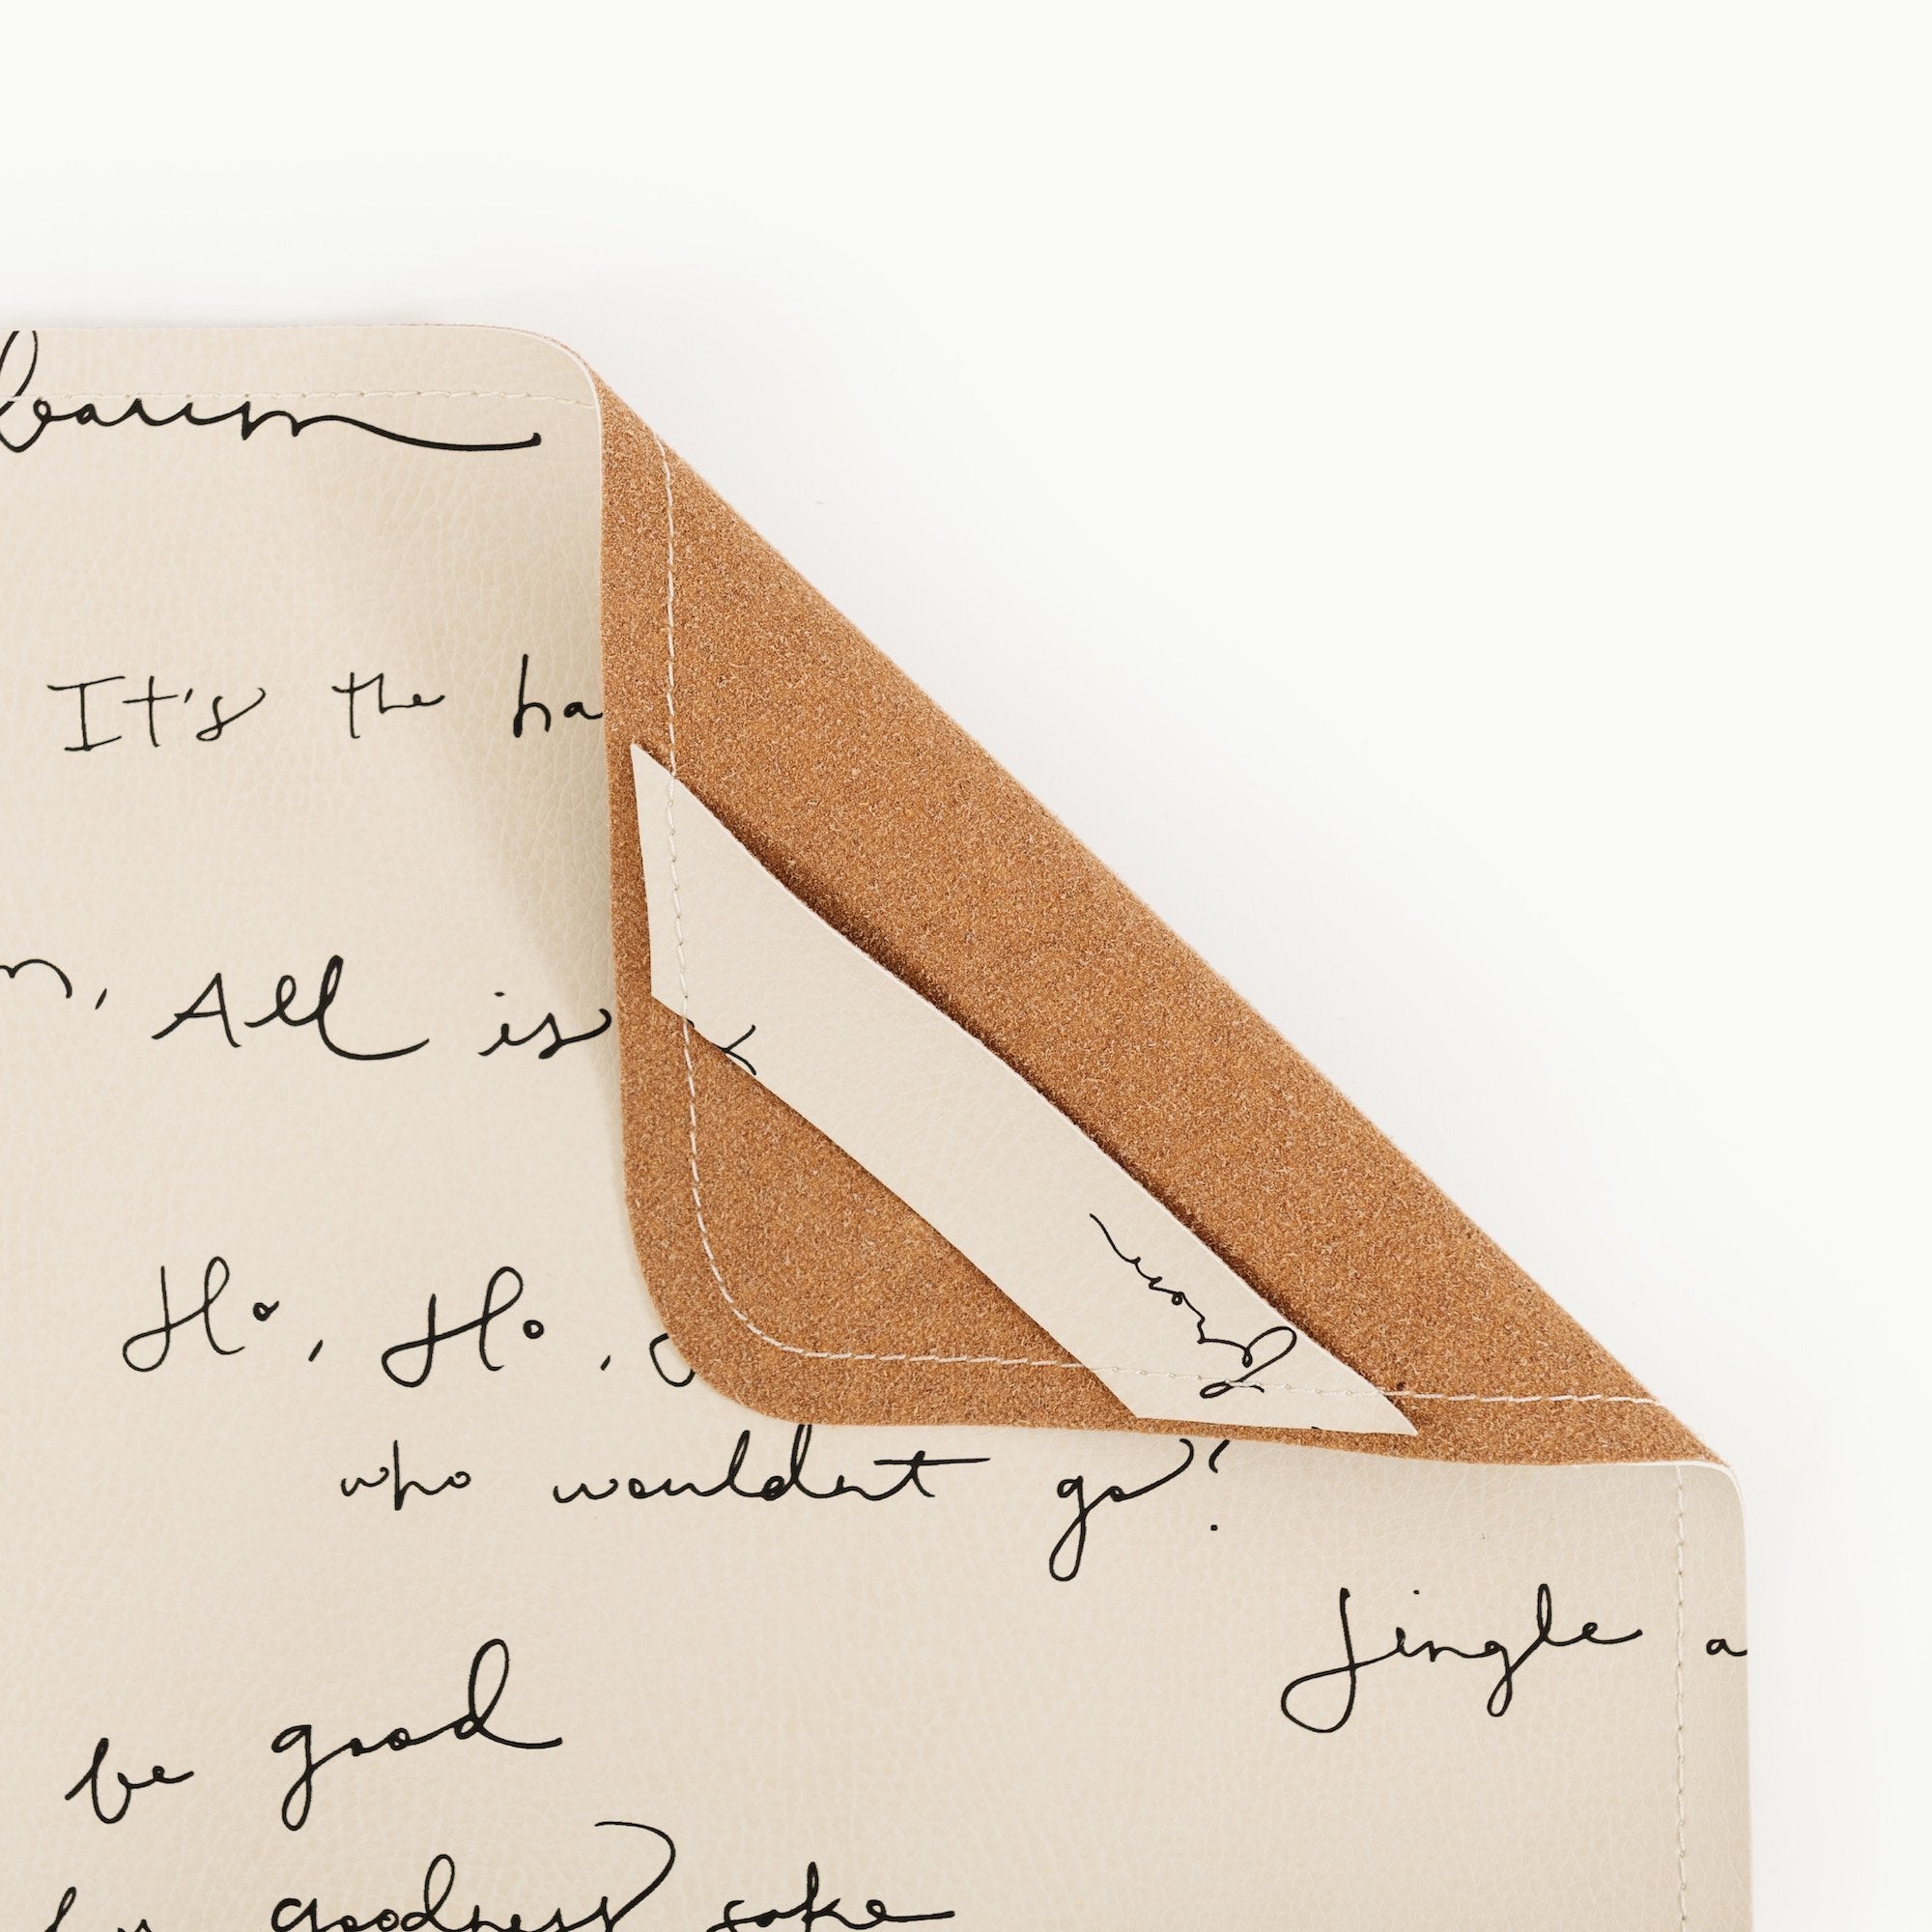 baum
It's the ha
, All is
Ho, Ho,
who wouldn't go?
Jingle a
be good
goodness sake